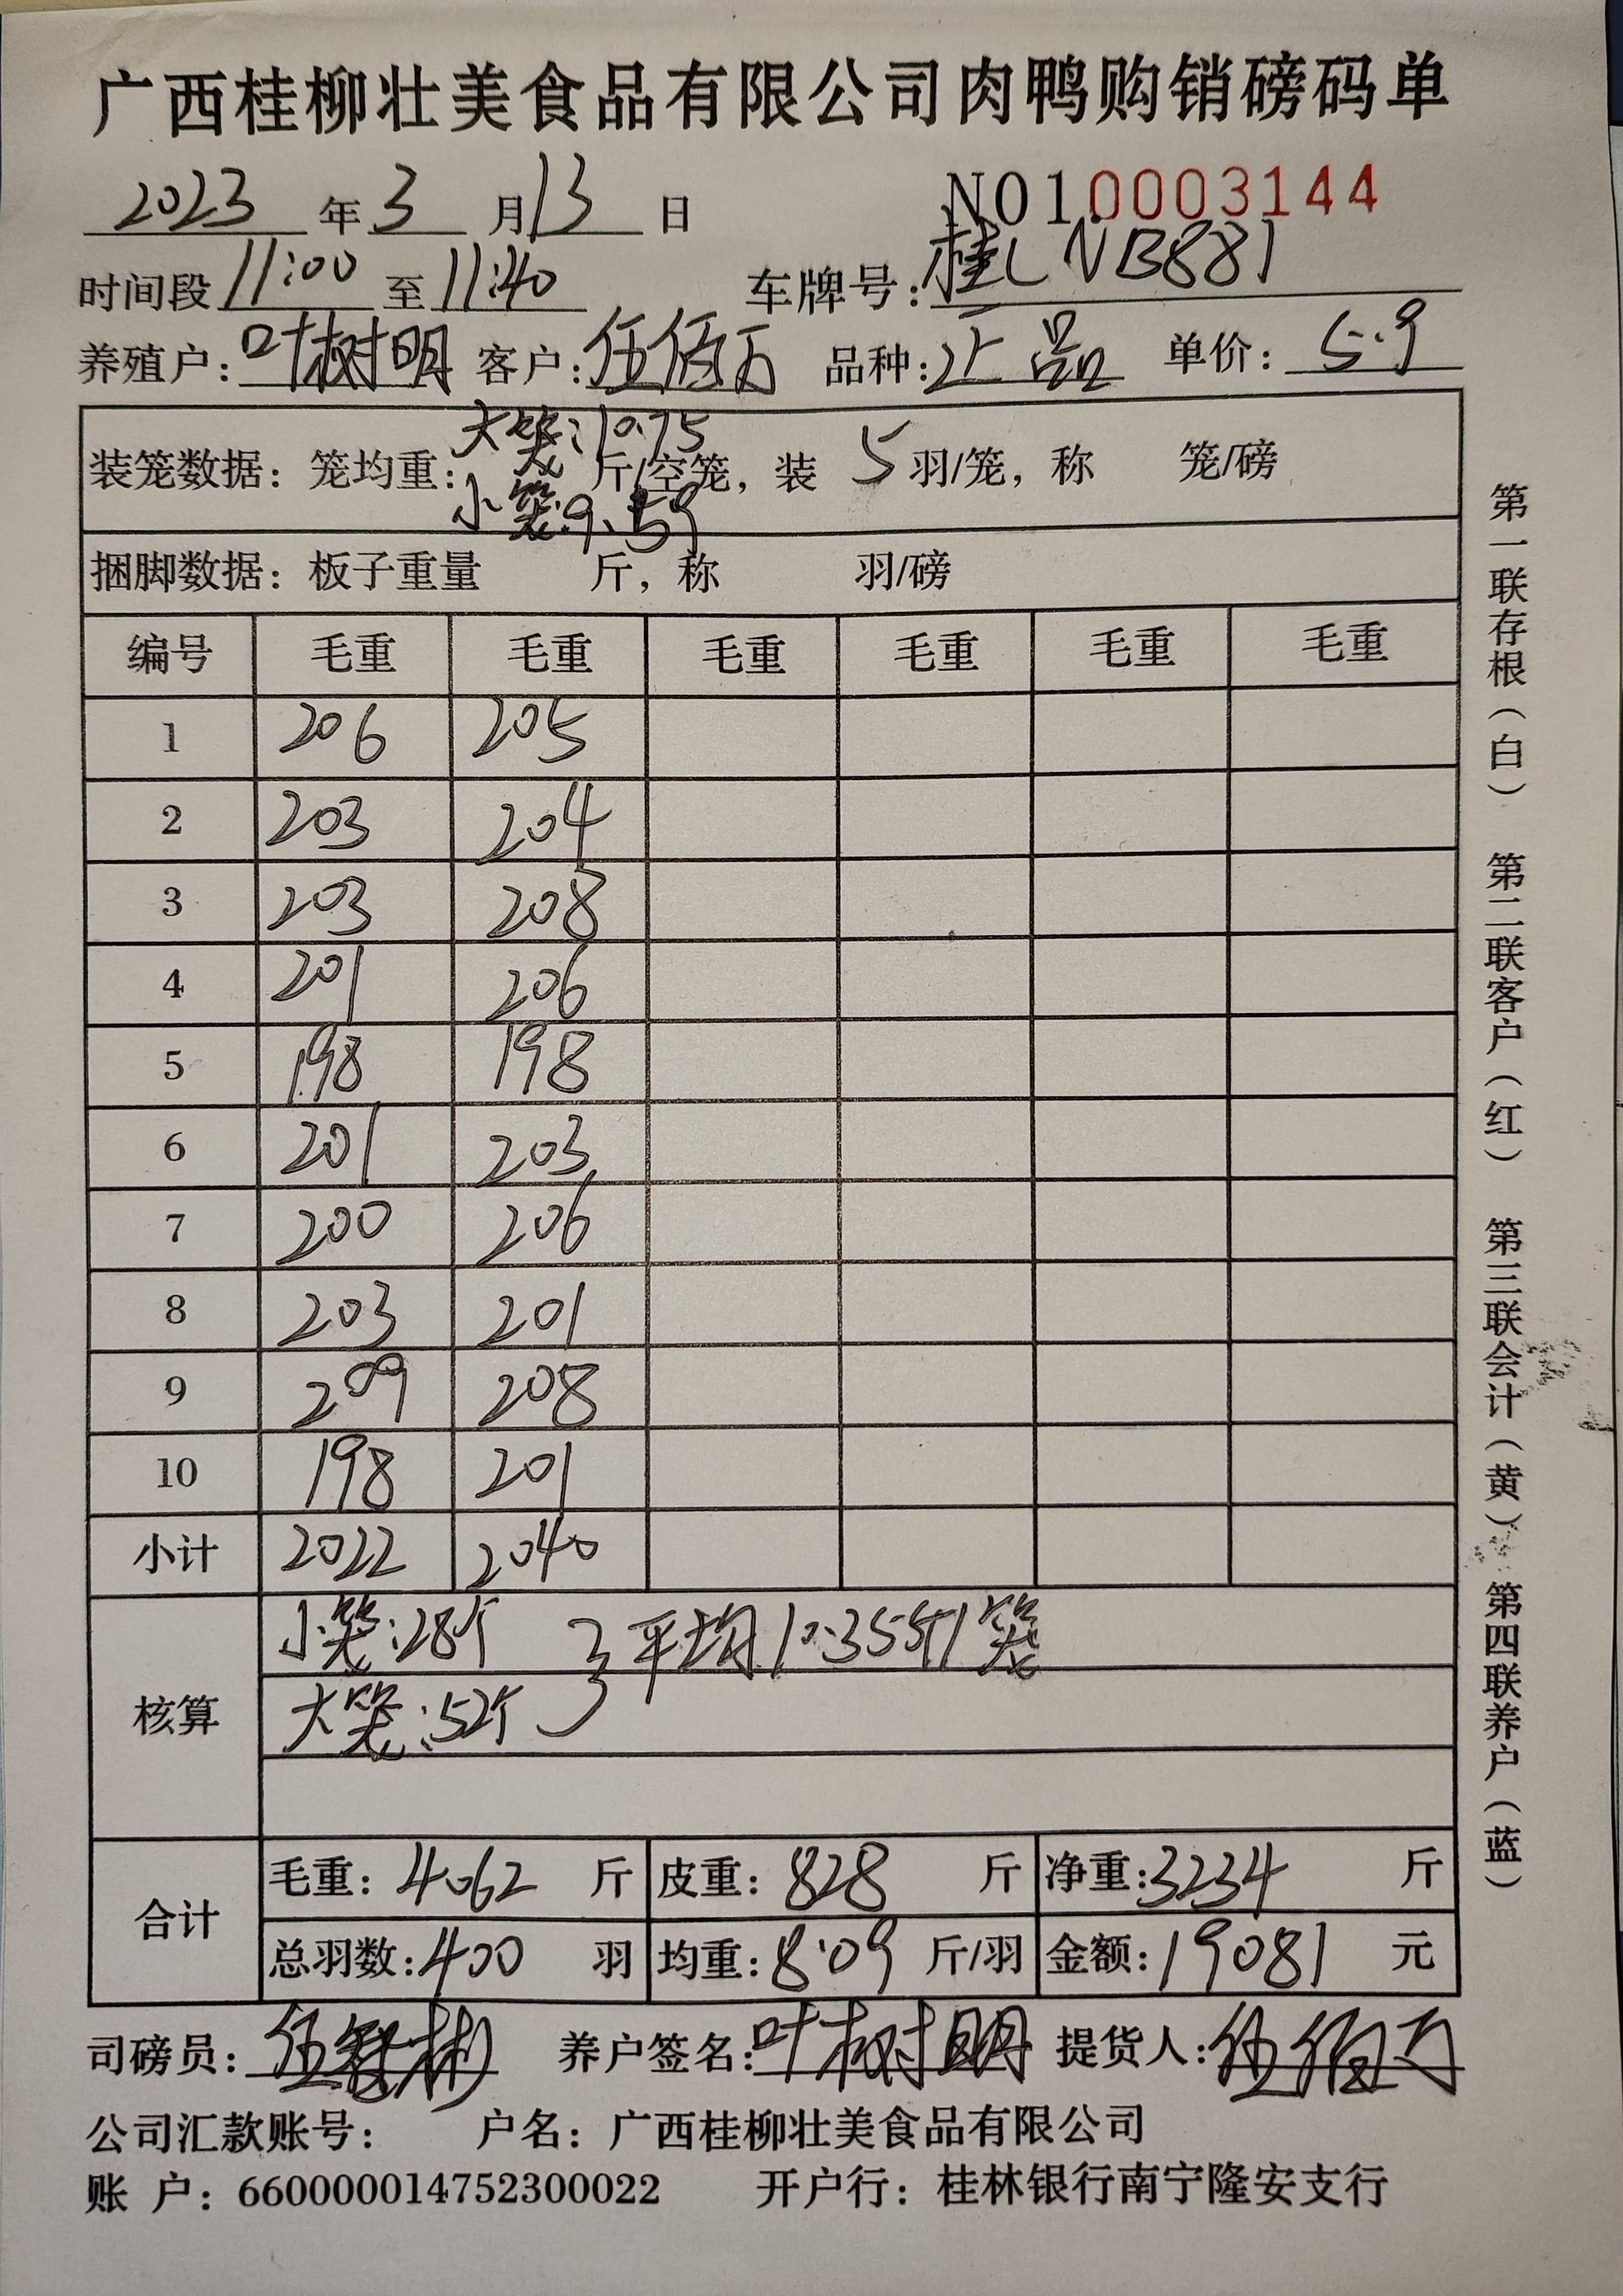 广西桂柳壮美食品有限公司肉鸭购销磅码单
2023 年 3 月 13 日 NO1.0003144
时间段 11:00 至 11:40 车牌号: 桂LNB881
养殖户: 叶树明 客户: 伍佰万 品种: 正品 单价: 5.9
大笼:10.75
装笼数据: 笼均重: 斤/空笼, 装 5 羽/笼, 称 笼/磅
小笼:9.59
捆脚数据: 板子重量 斤, 称 羽/磅
编号 毛重 毛重 毛重 毛重 毛重 毛重
1 206 205
2 203 204
3 203 208
4 201 206
5 198 198
6 201 203
7 200 206
8 203 201
9 209 208
10 198 201
小计 2022 2040
核算
小笼:28个 } 平均10.35斤/笼
大笼:52个
合计
毛重: 4062 斤 皮重: 828 斤 净重: 3234 斤
总羽数: 400 羽 均重: 8.09 斤/羽 金额: 19081 元
司磅员: 伍智彬 养户签名: 叶树明 提货人: 伍佰万
公司汇款账号: 户名: 广西桂柳壮美食品有限公司
账 户: 660000014752300022 开户行: 桂林银行南宁隆安支行
第一联存根(白) 第二联客户(红) 第三联会计(黄) 第四联养户(蓝)